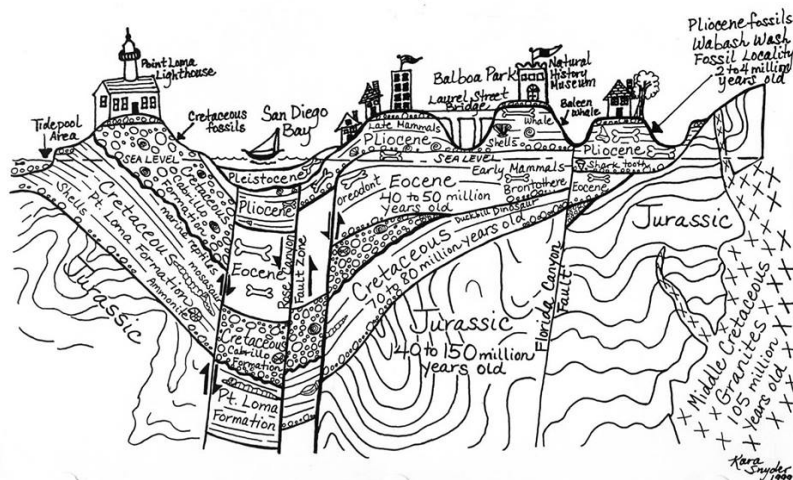 Point Loma
Lighthouse
Tidepool
Area
Cretaceous
fossils
San Diego
Bay
Balboa Park
Laurel Street
Bridge
Natural
History
Museum
Baleen
Whale
Pliocene fossils
Wabash Wash
Fossil Locality
2 to 4 million
years old
SEA LEVEL
Cretaceous
Cabrillo
Formation
marine reptiles
mosasaur
Cretaceous
Pt. Loma Formation
Shells
Ammonite
Jurassic
Pleistocene
Pliocene
Eocene
Cretaceous
Cabrillo
Formation
Pt. Loma
Formation
Rose Canyon
Fault Zone
Late Mammals
Pliocene
SEA LEVEL
Oreodont
Eocene
40 to 50 million
years old
Shells
Whale
Early Mammals
Brontothere
Duckbill Dinosaur
Cretaceous
70 to 80 million years old
Jurassic
40 to 150 million
years old
Florida Canyon
Fault
Pliocene
Shark tooth
Eocene
Jurassic
Middle Cretaceous
Granites
105 million
years old
Kara
Snyder
1999